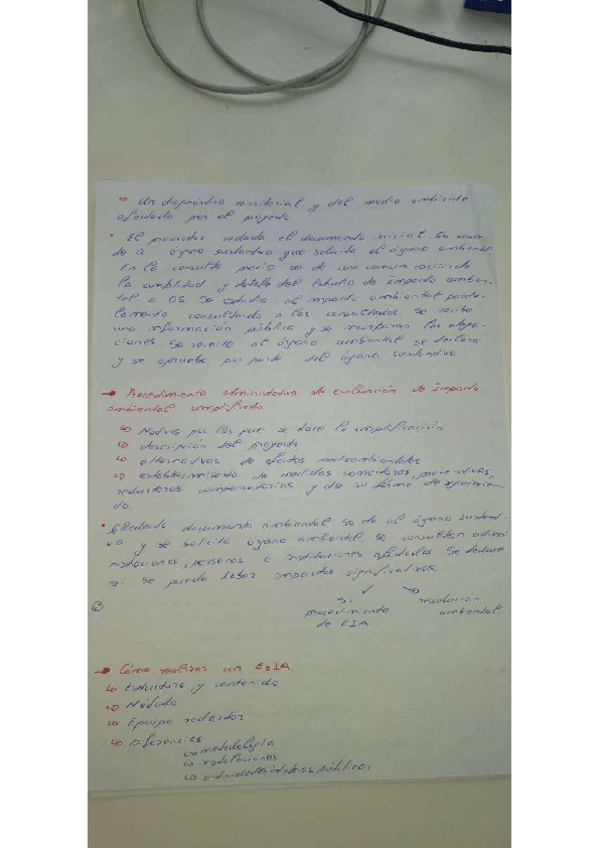 ↳ Un diagnóstico territorial y del medio ambiente
afectado por el proyecto.
• El promotor redacta el documento inicial. Se
de a órgano sustantivo que solicita el órgano ambiental
En la consulta previa se da una comunicación de
la amplitud y detalle del Estudio de Impacto ambien-
tal a OS. Se estudia el impacto ambiental
consultando a los consultados. Se
una información pública y se incorporan las alega-
ciones. Se remite al órgano ambiental se declara
y se aprueba por parte del órgano sustantivo.
→ Procedimiento administrativo de evaluación de impacto
ambiental simplificado.
↳ Motivos por los que se hace la simplificación
↳ descripción del proyecto
↳ alternativas de efectos medioambientales
↳ establecimiento de medidas correctoras, preventivas,
reductoras compensatorias y de su forma de
do.
• Redacta documento ambiental se da al órgano sustanti-
vo y se solicita órgano ambiental. Se consultan admi-
nistraciones, personas e instituciones afectadas. Se deduce
si se puede haber impactos significativos
Sí resolución
procedimiento ambiental.
de EIA
→ Cómo realizar un EsIA.
↳ Estructura y contenido
↳ Método
↳ Equipo redactor
↳ Diferencias
↳ metodología
↳
↳ públicas